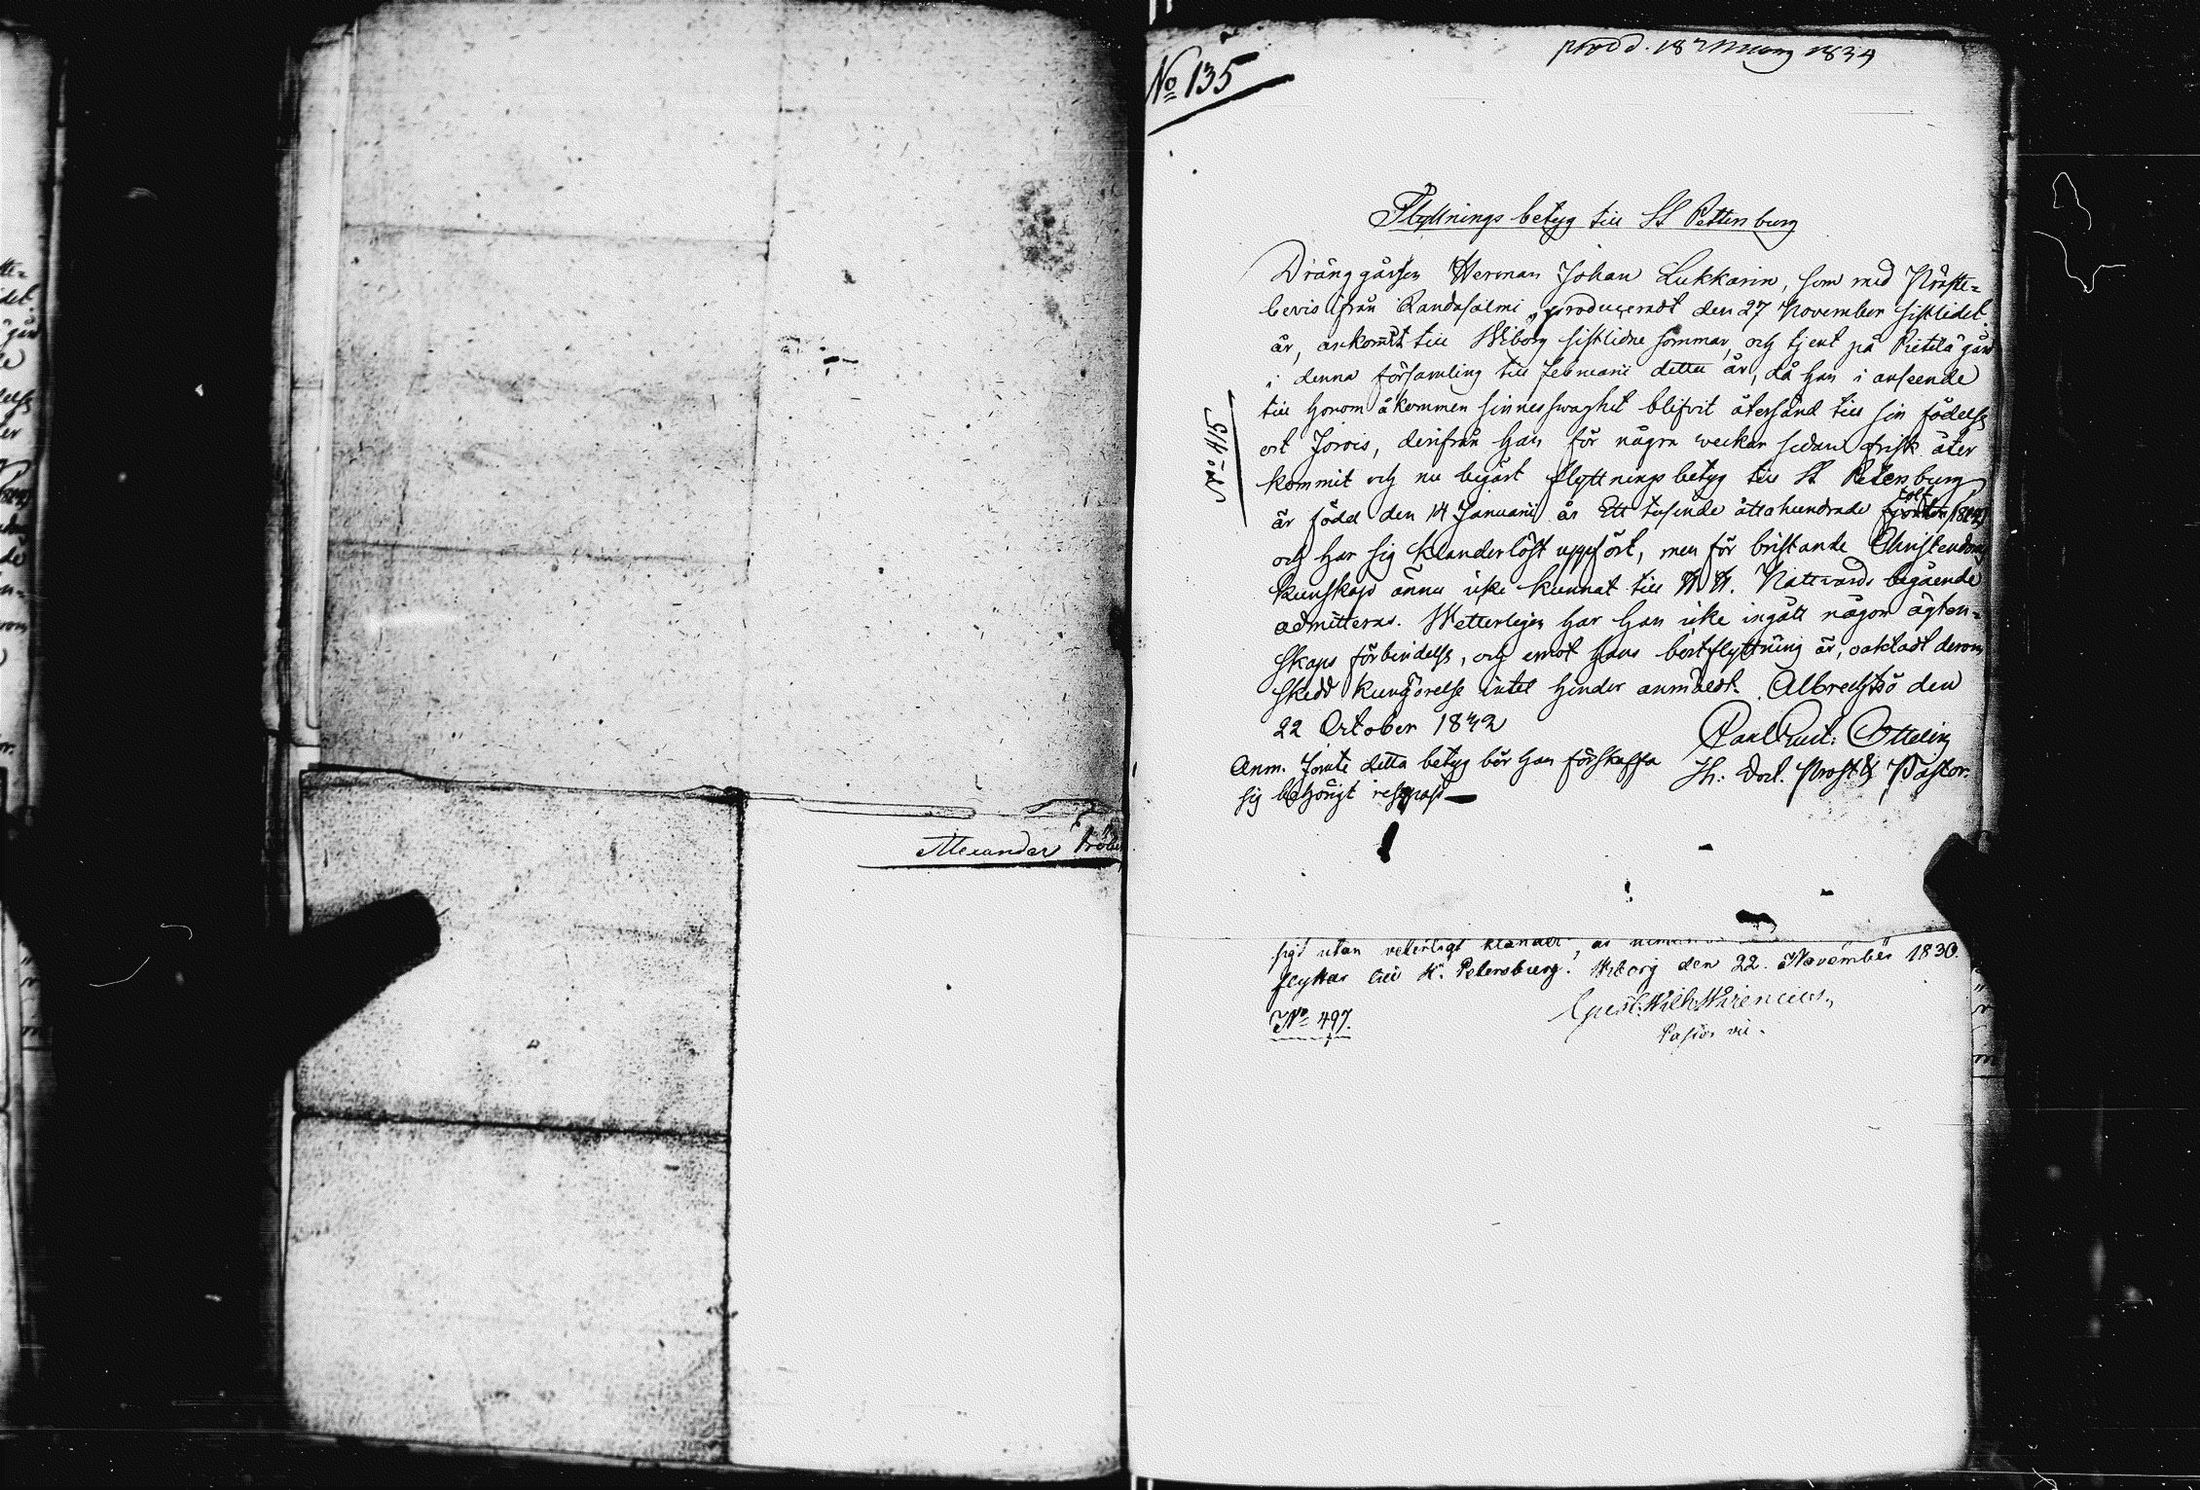 Alexander
No 135
prodd. 18 Mars 1834
Flyttnings betyg till St Pettersburg
Dränggåssen Herman Johan Lukkarin, som med Präste-
bevis ifrån Randasalmi, produceradt den 27 November sistlidet
år, ankommit till Wiborg sistlidne sommar, och tjent på Pietilä gård
i denna församling till Februarii detta år, då han i anseende
till honom åkommen sinnesswaghet blifvit återsänd till sin födelse
ort Jorois, derifrån han för några weckor sedan frisk åter
kommit och nu begärt flyttningsbetyg till St Petersburg
är född den 14 Januarii år Ett tusende åttahundrade tolf
och har sig klanderlöst uppfört, men för bristande Christendoms
kunskap ännu icke kunnat till H. H. Nattvards begående
admitteras. Wetterligen har han icke ingått någon ägten-
skaps förbindelse, och emot hans bortflyttning är, oaktadt derom
skedd kungörelse intet hinder anmäldt. Albrechtsö den
22 October 1832
Carl Gust: Ottelin
Th: Doct. Prost & Pastor.
Anm. Jemte detta betyg bör han förskaffa
sig behörigt respass
No 415
sigt utan veterligt klander,
flyttar till St. Petersburg. Wiborg den 22. November 1830.
Gust. Wilh. Wirenius,
Pastor vic.
No 497.